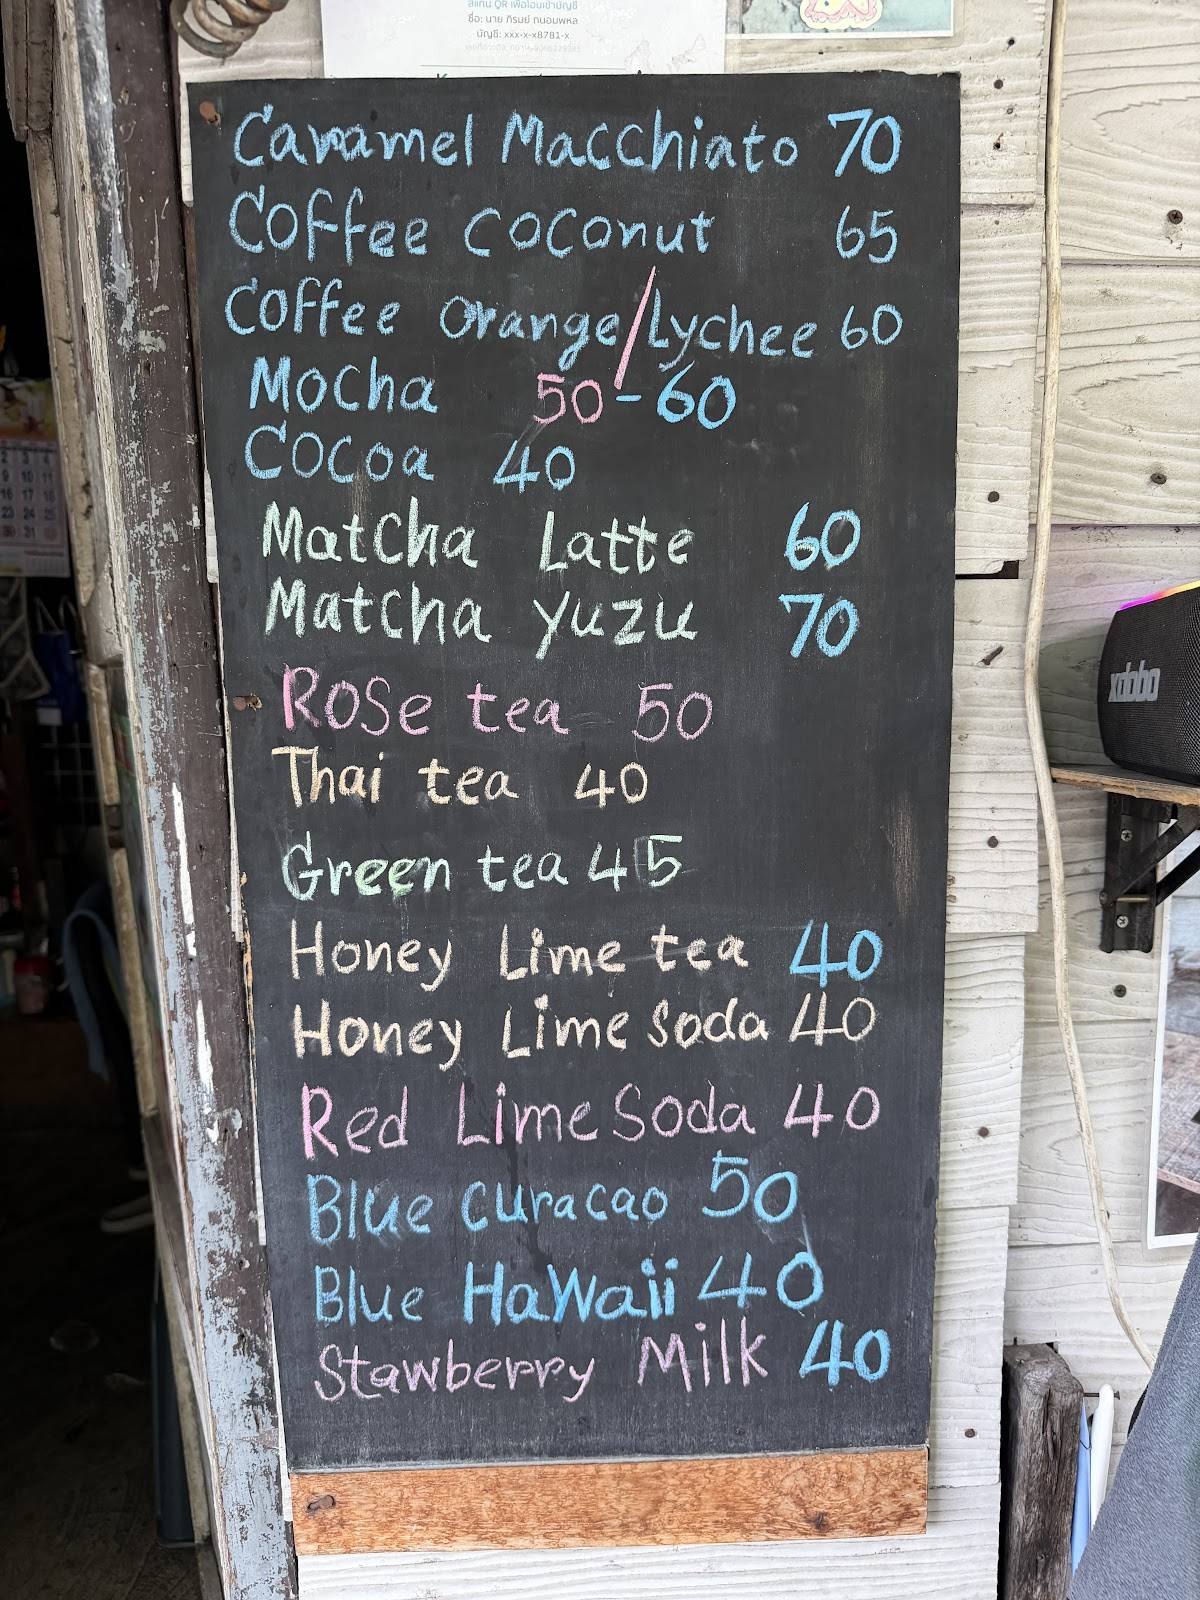 สแกน QR เพื่อโอนเข้าบัญชี
ชื่อ: นาย ภิรมย์ ถนอมพหล
บัญชี: xxx-x-x8781-x
Caramel Macchiato 70
Coffee coconut 65
Coffee orange/Lychee 60
Mocha 50-60
Cocoa 40
Matcha Latte 60
Matcha yuzu 70
Rose tea 50
Thai tea 40
Green tea 45
Honey Lime tea 40
Honey Lime Soda 40
Red Lime Soda 40
Blue curacao 50
Blue HaWaii 40
Stawberry Milk 40
xdobo
2 3 4
9 10 11
16 17 18
23 24 25
30 31